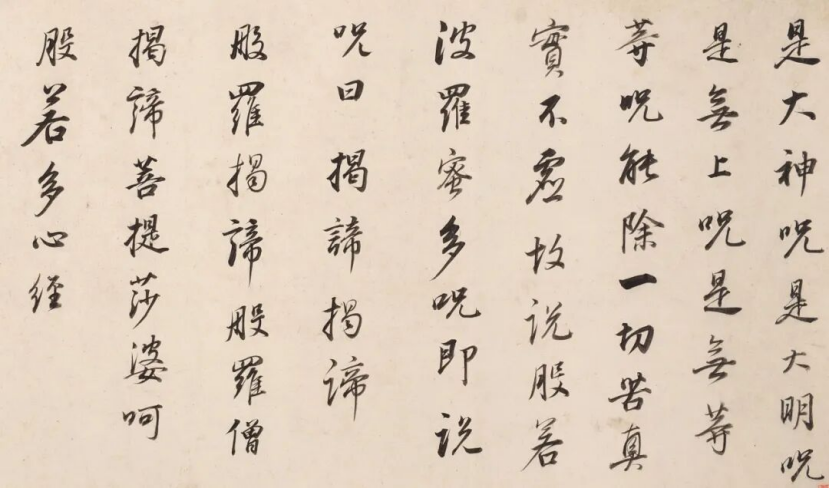 是大神呪是大明呪
是無上呪是無等
等呪能除一切苦真
實不虛故說般若
波羅蜜多呪即說
呪曰揭諦揭諦
般羅揭諦般羅僧
揭諦菩提莎婆呵
般若多心經